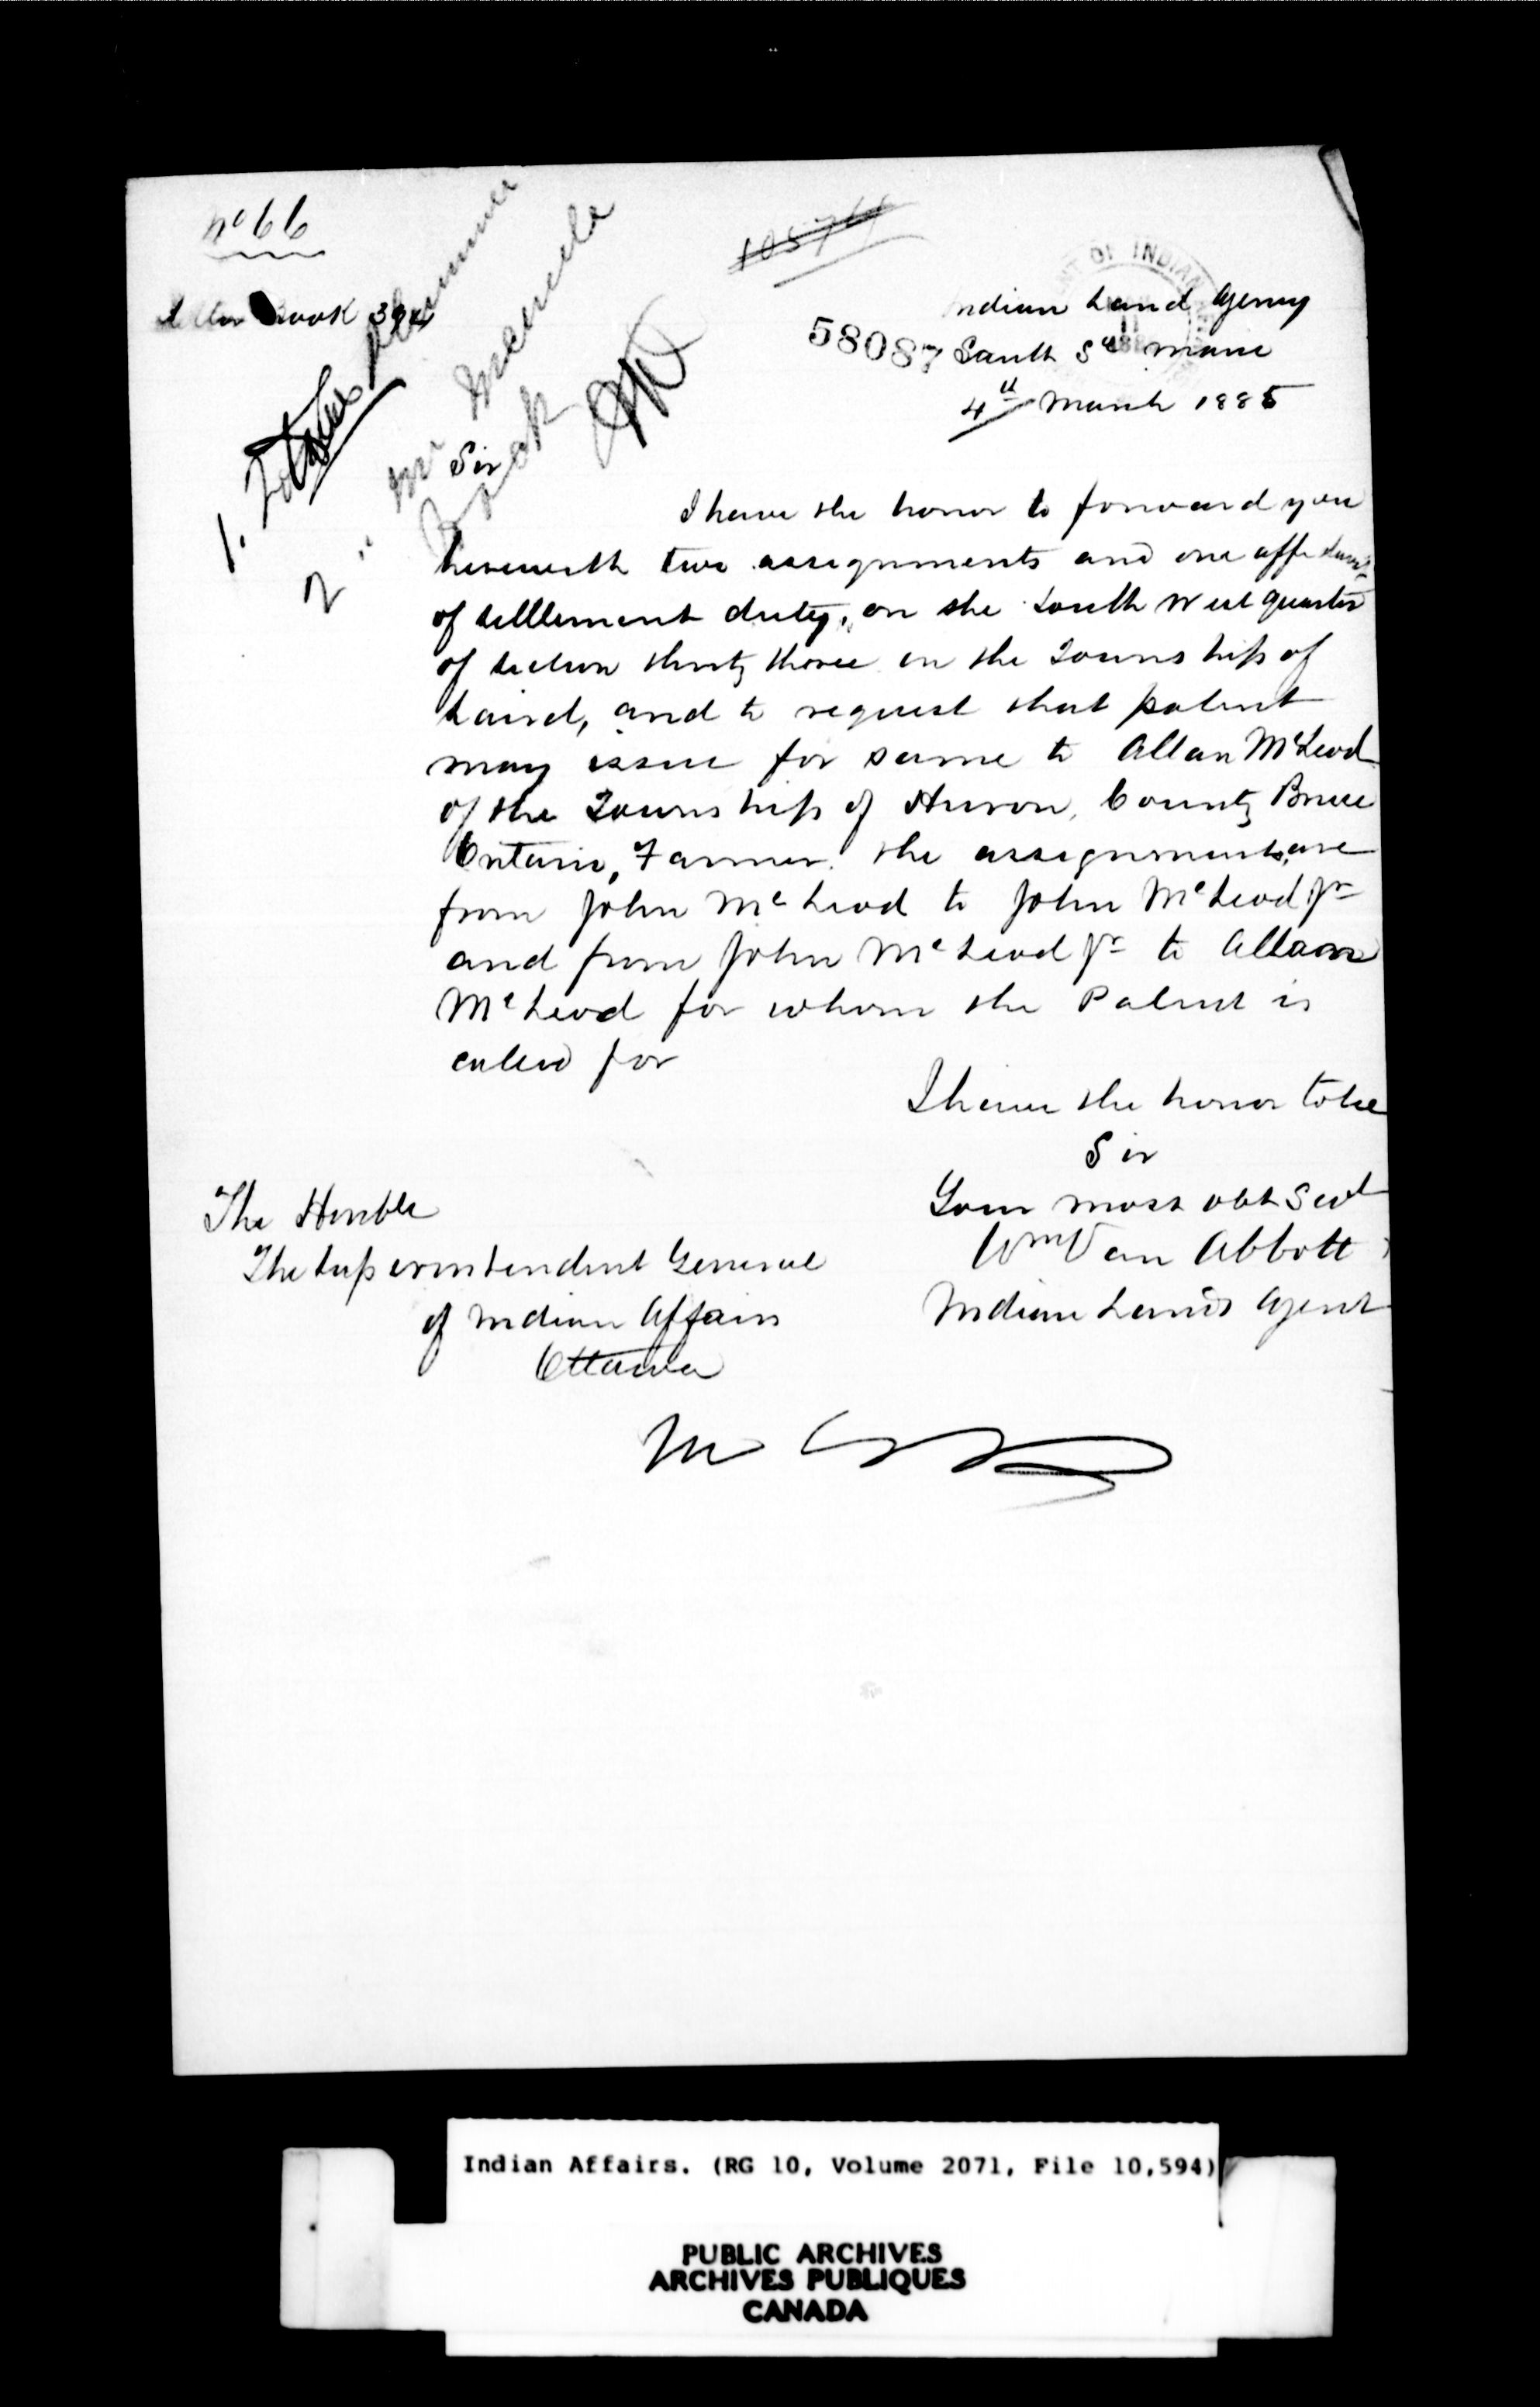 No 66
Letter Book 394
58087
Indian Land Agency
Sault Ste Marie
4th March 1885
Sir
I have the honor to forward you
herewith two assignments and one affidavit
of settlement duty, on the South West quarter
of section thirty three in the Township of
Laird, and to request that patent
may issue for same to Allan McLeod
of the Township of Huron, County Bruce
Ontario, Farmer. the assignments are
from John McLeod to John McLeod Jr
and from John McLeod Jr to Allan
McLeod for whom the Patent is
called for
I have the honor to be
Sir
Your most obt Servt
Wm Van Abbott
Indian Lands Agent
The Honble
The Superintendent General
of Indian Affairs
Ottawa
Indian Affairs. (RG 10, Volume 2071, File 10,594)
PUBLIC ARCHIVES
ARCHIVES PUBLIQUES
CANADA